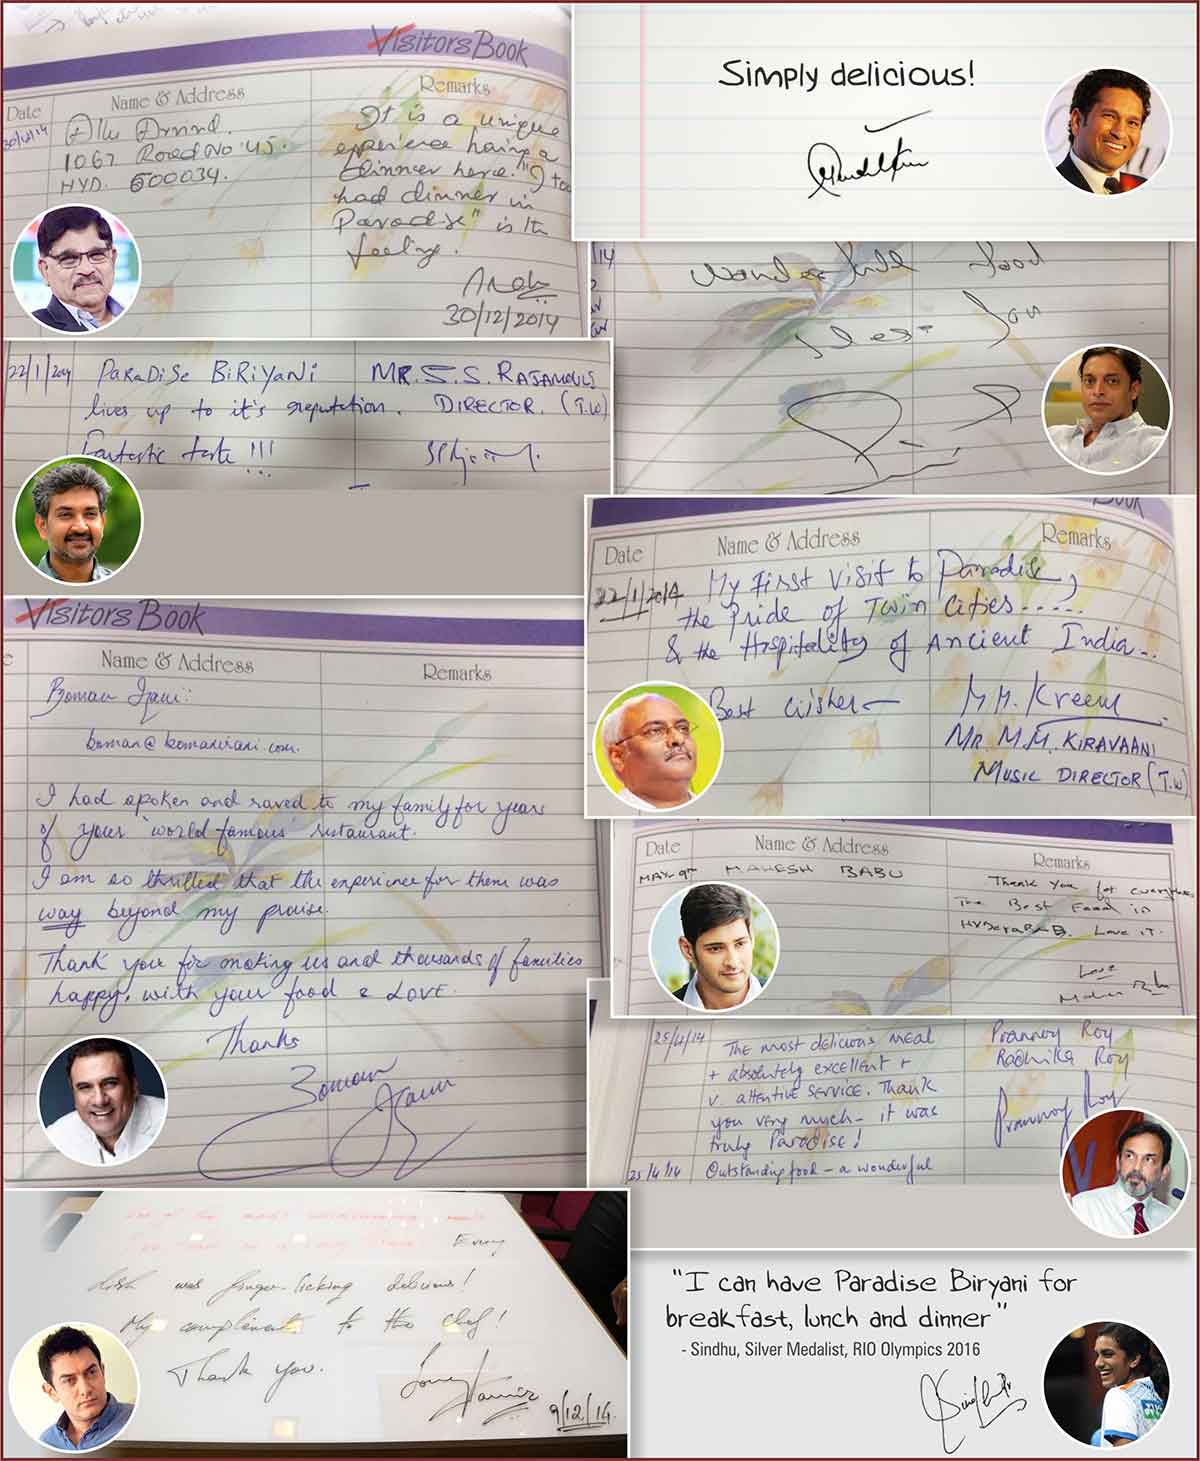 Visitors Book
Date
Name & Address
Remarks
30/12/14
Allu Arvind.
1067 Road No 45.
HYD. 500034.
It is a unique
experience having a
dinner here. "I too
had dinner in
Paradise" is the
feeling.
30/12/2014
Simply delicious!
wonderfull food
22/1/2014
PARADISE BIRIYANI
lives up to it's reputation.
Fantastic taste !!!
MR. S.S. RAJAMOULI
DIRECTOR. (T.W)
Book
Date
Name & Address
Remarks
22/1/2014
My First visit to Paradise,
the Pride of Twin Cities.....
& the Hospitality of Ancient India...
Best wishes
MR. M.M. KIRAVAANI
MUSIC DIRECTOR (T.W)
Visitors Book
Name & Address
Remarks
Boman Irani:
boman@bomanirani.com.
I had spoken and raved to my family for years
of your 'world famous' restaurant.
I am so thrilled that the experience for them was
way beyond my praise.
Thank you for making us and thousands of families
happy, with your food & LOVE.
Thanks
Boman Irani
Date
Name & Address
Remarks
MAY 9TH
MAHESH BABU
Thank you for everything
The Best Food in
HYDERABAD. Love it.
Love
25/4/14
The most delicious meal
+ absolutely excellent +
v. attentive service. Thank
you very much - it was
truly Paradise!
Prannoy Roy
Radhika Roy
Prannoy Roy
25/4/14
Outstanding food - a wonderful
Every
dish was finger-licking delicious!
My compliments to the chef!
Thank you.
Love
Aamir
9/12/14.
"I can have Paradise Biryani for
breakfast, lunch and dinner"
- Sindhu, Silver Medalist, RIO Olympics 2016